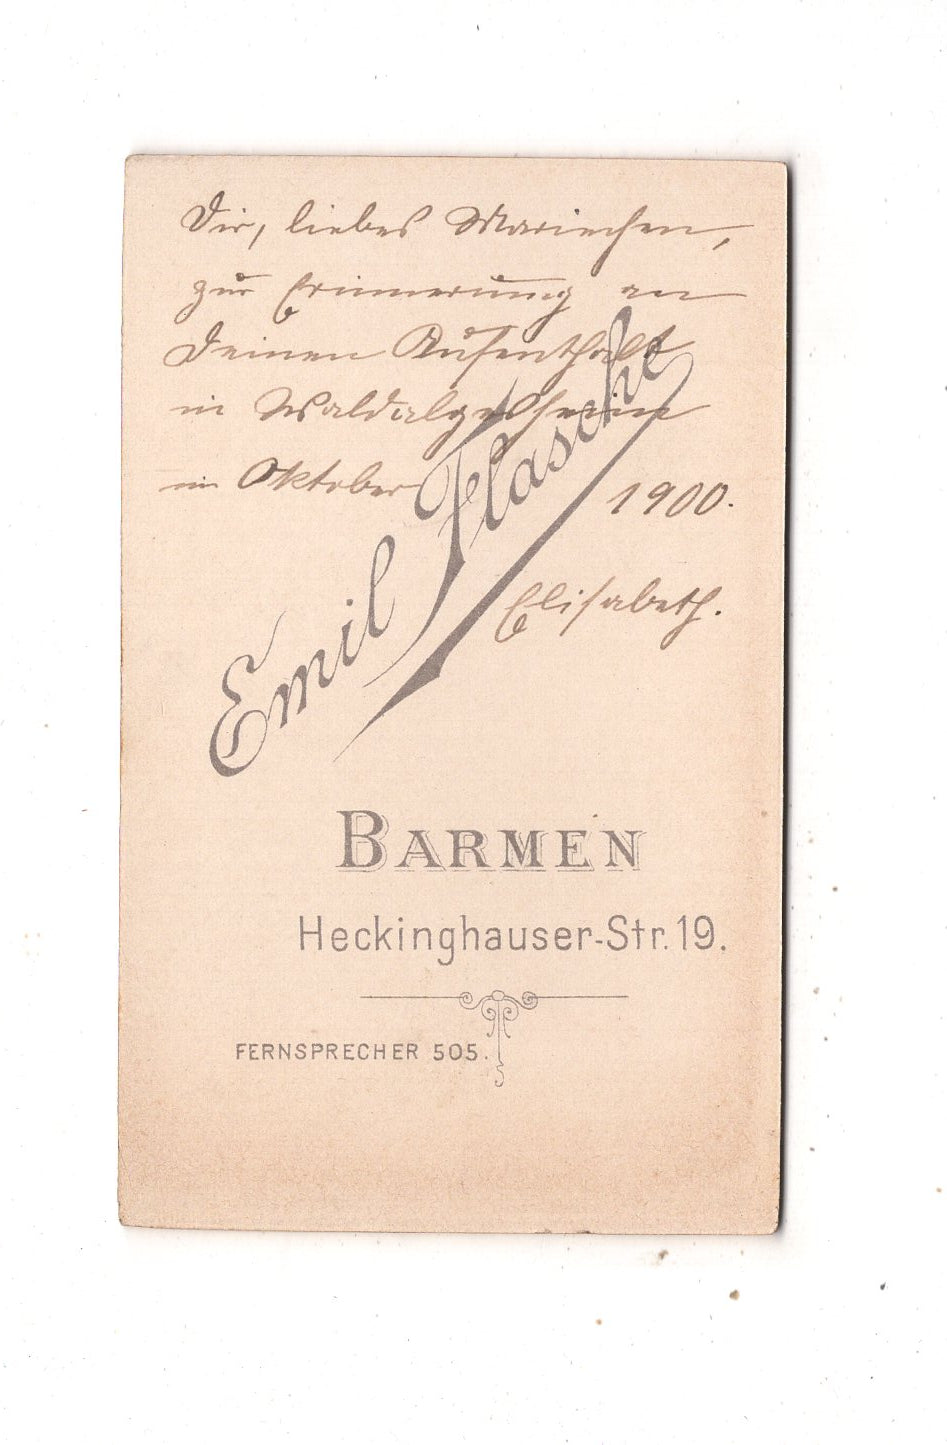 Dir, liebes Mariechen,
zur Erinnerung an
Deinen Aufenthalt
in Waldalgesheim
im Oktober 1900.
Elisabeth.
Emil Flasche
BARMEN
Heckinghauser-Str. 19.
FERNSPRECHER 505.